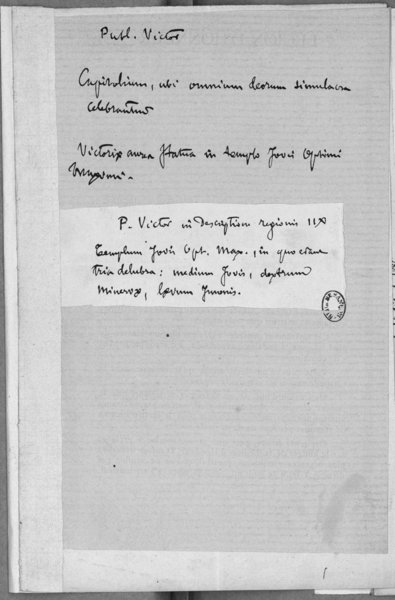 Publ. Victor
Capitolium, ubi omnium deorum simulacra
celebrantur
Victoriæ aurea statua in templo Jovis Optimi
Maximi.
P. Victor in Descriptione regionis IIX
Templum Jovis Opt. Max., in quo etiam
tria delubra: medium Jovis, dextrum
Minervæ, lævum Junonis.